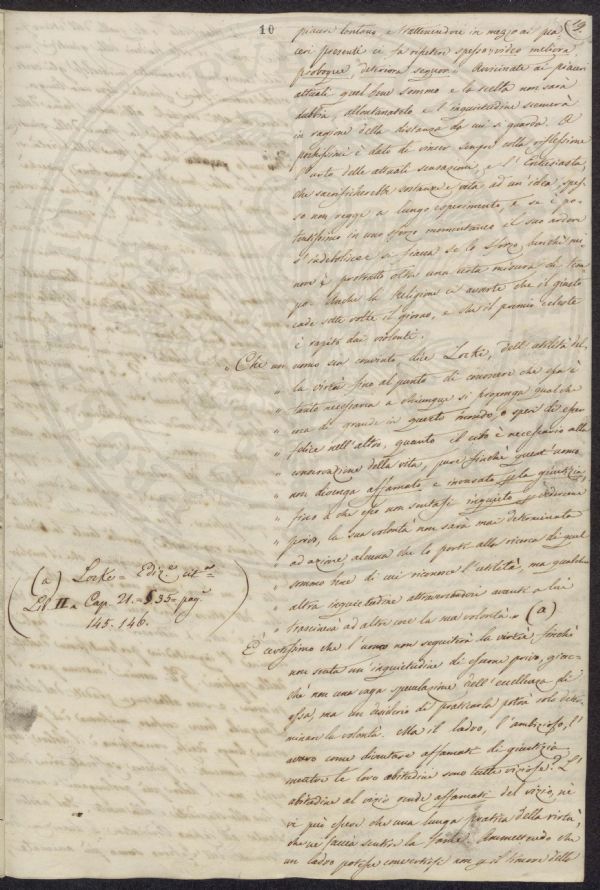 10
19.
piacer lontano, e trattenendoci in mezzo ai pia
ceri presenti ci fa ripetere spesso: video meliora
proboque, deteriora sequor. Avvicinate ai piaceri
attuali quel bene sommo e la scelta non sarà
dubbia, allontanatelo e l'inquietudine scemerà
in ragione della distanza da cui si guarda. A
pochissimi è dato di vincer sempre colla riflessione
l'urto delle attuali sensazioni, e l'Entusiasta,
che sacrificherebbe sostanze e vita ad un'idea spes
so non regge a lungo esperimento, e se è po
tentissimo in uno sforzo momentaneo il suo ardore
s'indebolisce e si fiacca se lo sforzo, benchè mi
nore è protratto oltre una certa misura di tem
po. Anche la Religione ci avverte che il giusto
cade sette volte il giorno, e che il premio celeste
è rapito dai violenti.
„ Che un uomo sia convinto dice Locke, dell'utilità del
„ la virtù fino al punto di conoscere che essa è
„ tanto necessaria a chiunque si proponga qualche
„ cosa di grande in questo mondo, o speri di esser
„ felice nell'altro, quanto il cibo è necessario alla
„ conservazione della vita, pure finchè quest'uomo
„ non divenga affamato e assetato della giustizia,
„ fino a che esso non sentasi inquieto
„ privo, la sua volontà non sarà mai determinata
„ ad azione alcuna che lo porti alla ricerca di quel
„ sommo bene di cui riconosce l'utilità, ma qualche
„ altra inquietudine attraversandosi avanti a lui
„ trascinerà ad altre cose la sua volontà. „ (a)
(a) Locke = Ediz.e cit.a =
Lib. II. = Cap. 21. = § 35 = pag.e
145. 146.
È certissimo che l'uomo non seguiterà la virtù finchè
non senta un'inquietudine di esserne privo, giac
chè non una vaga speculazione dell'eccellenza di
essa, ma un desiderio di praticarla potrà solo deter
minare la volontà. Ma il ladro, l'ambizioso, l'
avaro come diventare affamati di giustizia
mentre le loro abitudini sono tutte viziose? L'
abitudine al vizio rende affamati del vizio, ne
vi può essere che una lunga pratica della virtù,
che ne faccia sentire la fame. Ammettendo che
un ladro potesse convertirsi non per il timore delle